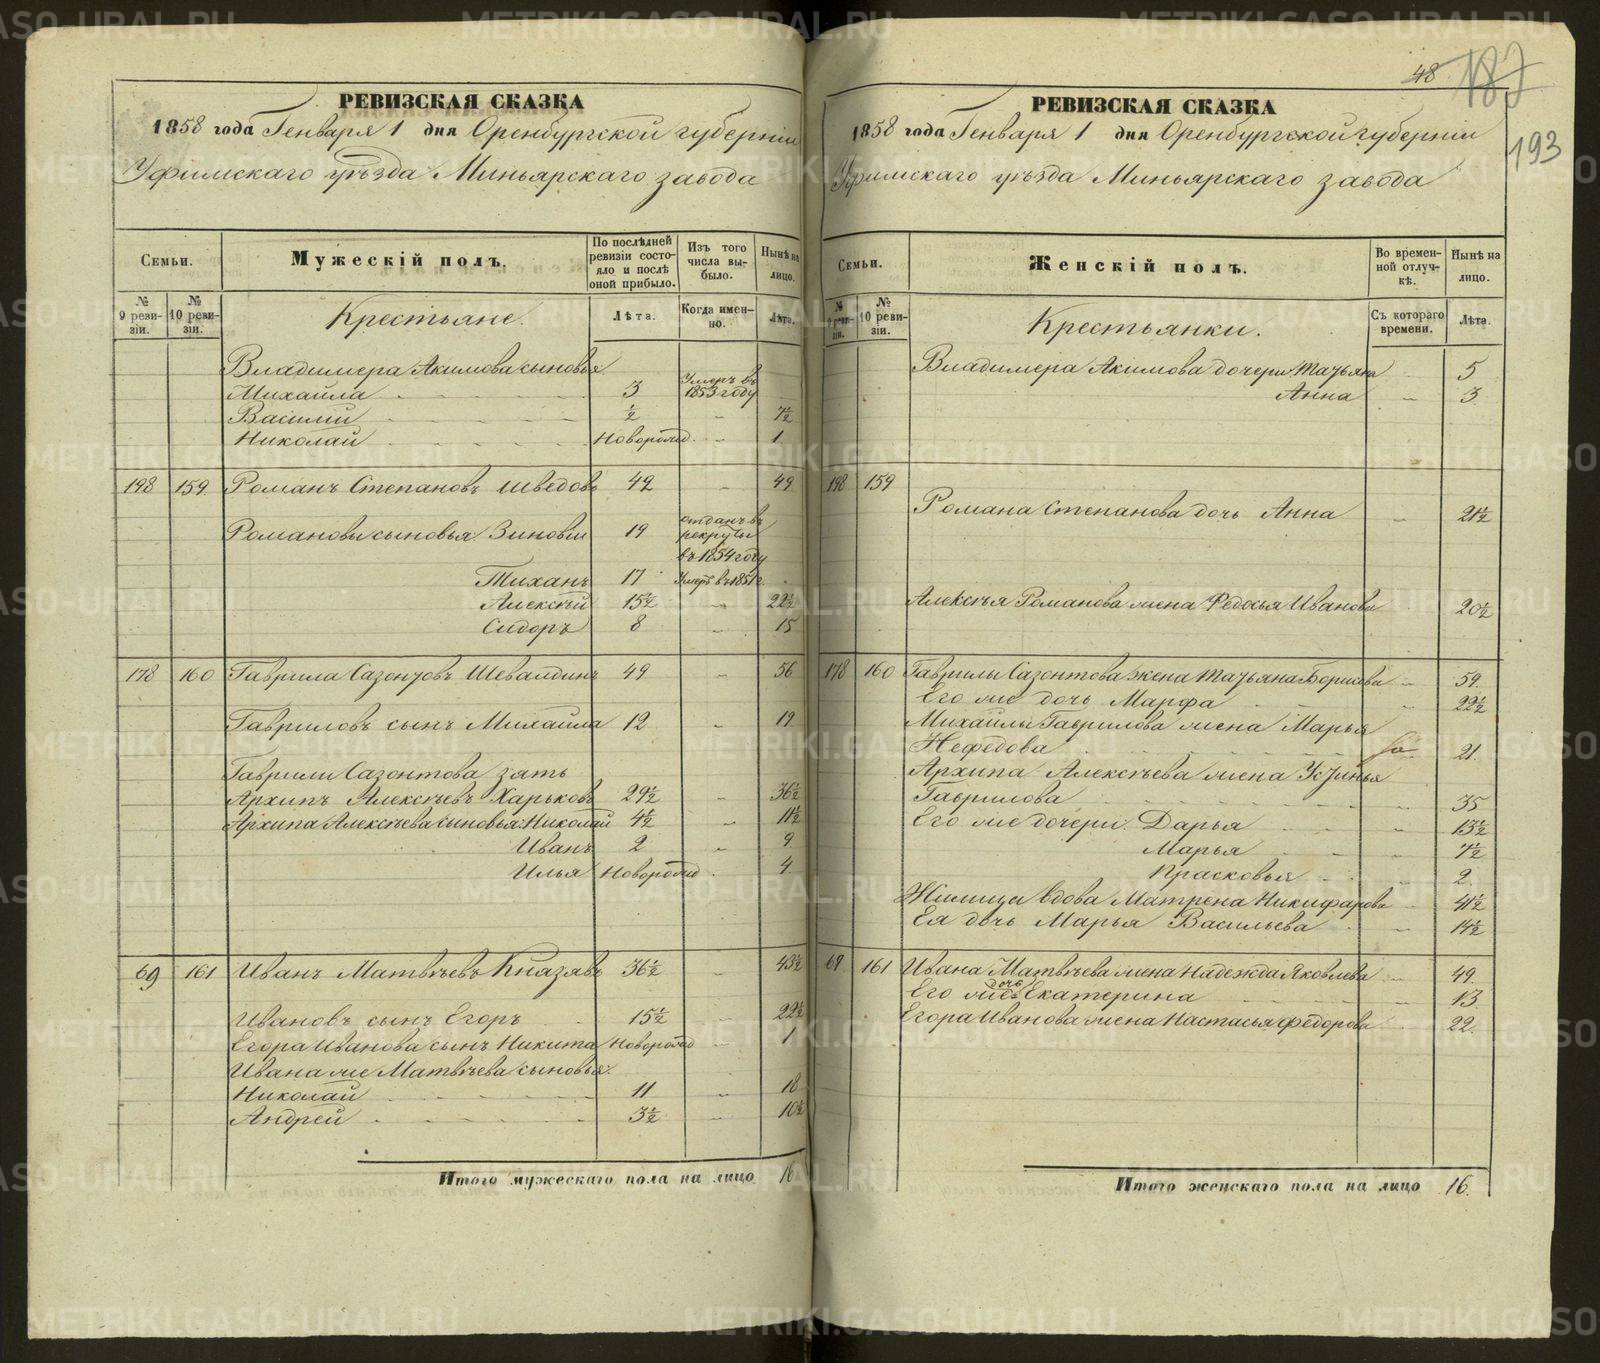 РЕВИЗСКАЯ СКАЗКА
1858 года Генваря 1 дня Оренбургской губернии
Уфимскаго уѣзда Миньярскаго завода
Семьи.
Мужескій полъ.
По послѣдней ревизіи состояло и послѣ оной прибыло.
Изъ того числа выбыло.
Нынѣ на лицо.
№ 9 ревизіи.
№ 10 ревизіи.
Крестьяне.
Лѣта.
Когда именно.
Лѣта.
Владимера Акимова сыновья
Михайла 3 Умеръ въ 1853 году
Василий ½ 7½
Николай Новорожд. 1
198 159 Романъ Степановъ Шведовъ 42 49
Романовы сыновья Зиновий 19 отданъ въ рекруты въ 1854 году
Тиханъ 17 Умеръ въ 1851 г.
Алексѣй 15½ 22½
Сидоръ 8 15
178 160 Гаврила Сазонтовъ Шевалдинъ 49 56
Гавриловъ сынъ Михайла 12 19
Гаврилы Сазонтова зять
Архипъ Алексѣевъ Харьковъ 29½ 36½
Архипа Алексѣева сыновья: Николай 4½ 11½
Иванъ 2 9
Илья Новорожд. 4
69 161 Иванъ Матвѣевъ Князявъ 36½ 43½
Ивановъ сынъ Егоръ 15½ 22½
Егора Иванова сынъ Никита Новорожд 1
Ивана же Матвѣева сыновья:
Николай 11 18
Андрей 3½ 10½
Итого мужескаго пола на лицо 16
48 187
193
РЕВИЗСКАЯ СКАЗКА
1858 года Генваря 1 дня Оренбургской губернии
Уфимскаго уѣзда Миньярскаго завода
Семьи.
Женскій полъ.
Во временной отлучкѣ.
Нынѣ на лицо.
№ 9 ревизіи.
№ 10 ревизіи.
Крестьянки.
Съ котораго времени.
Лѣта.
Владимера Акимова дочери Татьяна 5
Анна 3
198 159
Романа Степанова дочь Анна 21½
Алексѣя Романова жена Федосья Иванова 20½
178 160 Гаврилы Сазонтова жена Татьяна Борисова 59
Его же дочь Марфа 22½
Михайлы Гаврилова жена Марья
Нефедова 21
Архипа Алексѣева жена Устинья
Гаврилова 35
Его же дочери: Дарья 13½
Марья 7½
Прасковья 2
Жилица вдова Матрена Никифарова 41½
Ея дочь Марья Васильева 14½
69 161 Ивана Матвѣева жена Надежда Яковлева 49
Его же дочь Екатерина 13
Егора Иванова жена Настасья Федорова 22
Итого женскаго пола на лицо 16.
METRIKI.GASO-URAL.RU